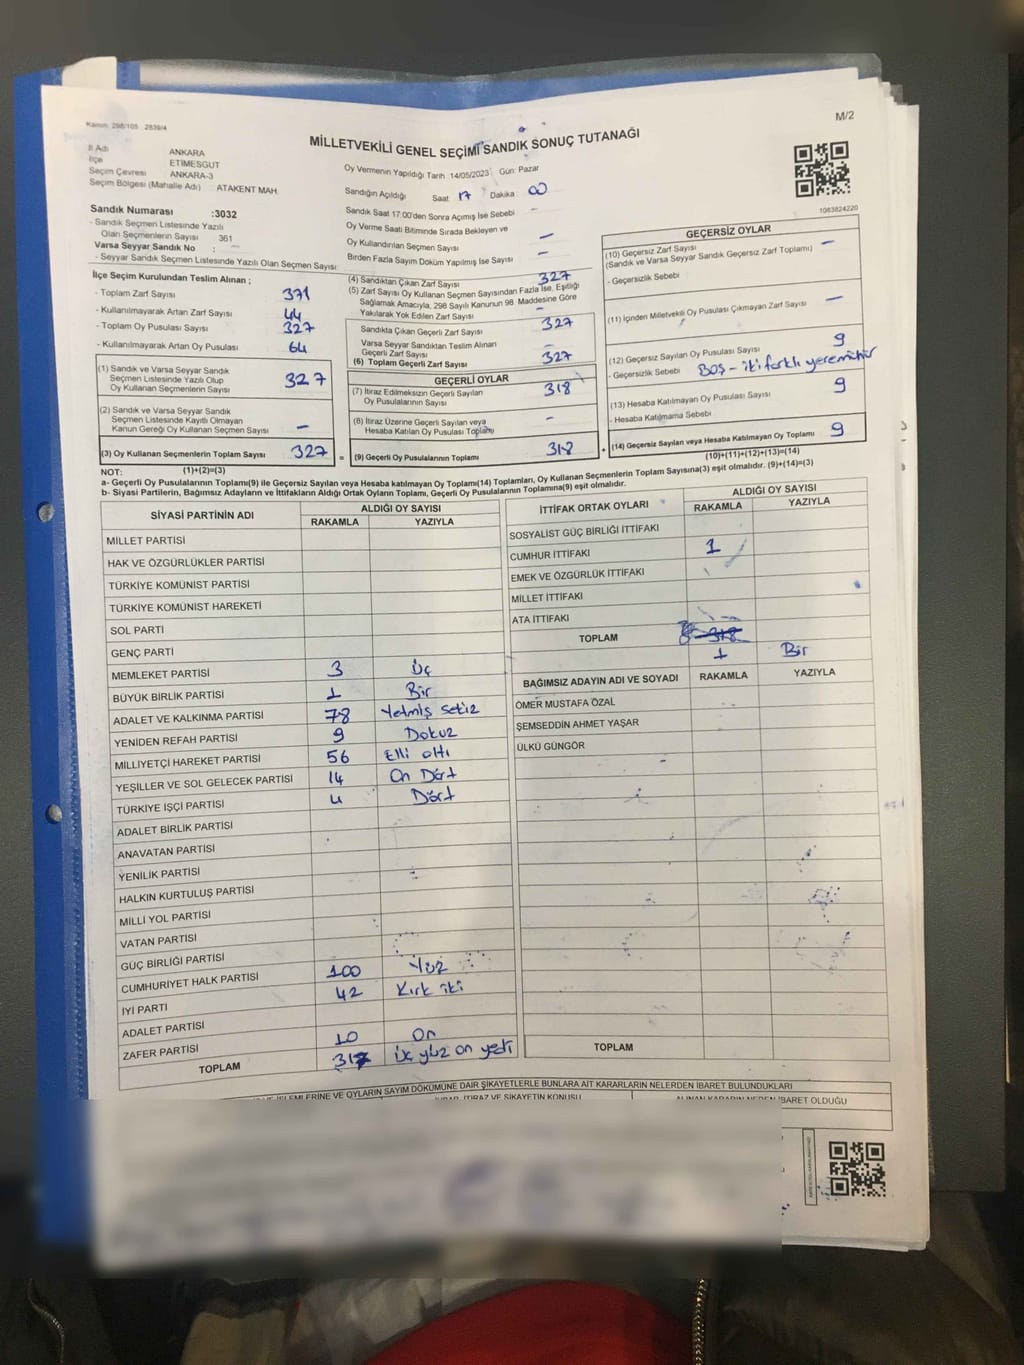 Kanun: 298/105 2839/4
M/2
MİLLETVEKİLİ GENEL SEÇİMİ SANDIK SONUÇ TUTANAĞI
İl Adı ANKARA
İlçe ETİMESGUT
Seçim Çevresi ANKARA-3
Seçim Bölgesi (Mahalle Adı) ATAKENT MAH.
Sandık Numarası :3032
- Sandık Seçmen Listesinde Yazılı
Olan Seçmenlerin Sayısı 361
Varsa Seyyar Sandık No : -
- Seyyar Sandık Seçmen Listesinde Yazılı Olan Seçmen Sayısı
Oy Vermenin Yapıldığı Tarih :14/05/2023 Gün: Pazar
Sandığın Açıldığı Saat 17 Dakika 00
Sandık Saat 17:00'den Sonra Açımış İse Sebebi -
Oy Verme Saati Bitiminde Sırada Bekleyen ve
Oy Kullandırılan Seçmen Sayısı -
Birden Fazla Sayım Döküm Yapılmış İse Sayısı -
1083824220
İlçe Seçim Kurulundan Teslim Alınan ;
- Toplam Zarf Sayısı 371
- Kullanılmayarak Artan Zarf Sayısı 44
- Toplam Oy Pusulası Sayısı 327
- Kullanılmayarak Artan Oy Pusulası 64
(1) Sandık ve Varsa Seyyar Sandık
Seçmen Listesinde Yazılı Olup
Oy Kullanan Seçmenlerin Sayısı 327
(2) Sandık ve Varsa Seyyar Sandık
Seçmen Listesinde Kayıtlı Olmayan
Kanun Gereği Oy Kullanan Seçmen Sayısı -
(3) Oy Kullanan Seçmenlerin Toplam Sayısı 327 =
(4) Sandıktan Çıkan Zarf Sayısı 327
(5) Zarf Sayısı Oy Kullanan Seçmen Sayısından Fazla İse, Eşitliği
Sağlamak Amacıyla, 298 Sayılı Kanunun 98. Maddesine Göre
Yakılarak Yok Edilen Zarf Sayısı -
Sandıkta Çıkan Geçerli Zarf Sayısı 327
Varsa Seyyar Sandıktan Teslim Alınan
Geçerli Zarf Sayısı -
(6) Toplam Geçerli Zarf Sayısı 327
GEÇERLİ OYLAR
(7) İtiraz Edilmeksizin Geçerli Sayılan
Oy Pusulalarının Sayısı 318
(8) İtiraz Üzerine Geçerli Sayılan veya
Hesaba Katılan Oy Pusulası Toplamı -
(9) Geçerli Oy Pusulalarının Toplamı 318 +
GEÇERSİZ OYLAR
(10) Geçersiz Zarf Sayısı
(Sandık ve Varsa Seyyar Sandık Geçersiz Zarf Toplamı) -
- Geçersizlik Sebebi
(11) İçinden Milletvekili Oy Pusulası Çıkmayan Zarf Sayısı -
(12) Geçersiz Sayılan Oy Pusulası Sayısı 9
- Geçersizlik Sebebi Boş - iki farklı yere mühür
(13) Hesaba Katılmayan Oy Pusulası Sayısı 9
- Hesaba Katılmama Sebebi
(14) Geçersiz Sayılan veya Hesaba Katılmayan Oy Toplamı 9
(10)+(11)+(12)+(13)=(14)
NOT: (1)+(2)=(3)
a- Geçerli Oy Pusulalarının Toplamı(9) ile Geçersiz Sayılan veya Hesaba katılmayan Oy Toplamı(14) Toplamları, Oy Kullanan Seçmenlerin Toplam Sayısına(3) eşit olmalıdır. (9)+(14)=(3)
b- Siyasi Partilerin, Bağımsız Adayların ve İttifakların Aldığı Ortak Oyların Toplamı, Geçerli Oy Pusulalarının Toplamına(9) eşit olmalıdır.
SİYASİ PARTİNİN ADI ALDIĞI OY SAYISI
RAKAMLA YAZIYLA
MİLLET PARTİSİ
HAK VE ÖZGÜRLÜKLER PARTİSİ
TÜRKİYE KOMÜNİST PARTİSİ
TÜRKİYE KOMÜNİST HAREKETİ
SOL PARTİ
GENÇ PARTİ
MEMLEKET PARTİSİ 3 Üç
BÜYÜK BİRLİK PARTİSİ 1 Bir
ADALET VE KALKINMA PARTİSİ 78 Yetmiş sekiz
YENİDEN REFAH PARTİSİ 9 Dokuz
MİLLİYETÇİ HAREKET PARTİSİ 56 Elli altı
YEŞİLLER VE SOL GELECEK PARTİSİ 14 On Dört
TÜRKİYE İŞÇİ PARTİSİ 4 Dört
ADALET BİRLİK PARTİSİ
ANAVATAN PARTİSİ
YENİLİK PARTİSİ
HALKIN KURTULUŞ PARTİSİ
MİLLİ YOL PARTİSİ
VATAN PARTİSİ
GÜÇ BİRLİĞİ PARTİSİ
CUMHURİYET HALK PARTİSİ 100 Yüz
İYİ PARTİ 42 Kırk iki
ADALET PARTİSİ
ZAFER PARTİSİ 10 On
TOPLAM 317 Üç yüz on yedi
İTTİFAK ORTAK OYLARI ALDIĞI OY SAYISI
RAKAMLA YAZIYLA
SOSYALİST GÜÇ BİRLİĞİ İTTİFAKI
CUMHUR İTTİFAKI 1
EMEK VE ÖZGÜRLÜK İTTİFAKI
MİLLET İTTİFAKI
ATA İTTİFAKI
TOPLAM 318
1 Bir
BAĞIMSIZ ADAYIN ADI VE SOYADI RAKAMLA YAZIYLA
ÖMER MUSTAFA ÖZAL
ŞEMSEDDİN AHMET YAŞAR
ÜLKÜ GÜNGÖR
TOPLAM
İŞLEMLERİNE VE OYLARIN SAYIM DÖKÜMÜNE DAİR ŞİKAYETLERLE BUNLARA AİT KARARLARIN NELERDEN İBARET BULUNDUKLARI
İTİRAZ VE ŞİKAYETİN KONUSU ALINAN KARARIN NEDEN İBARET OLDUĞU